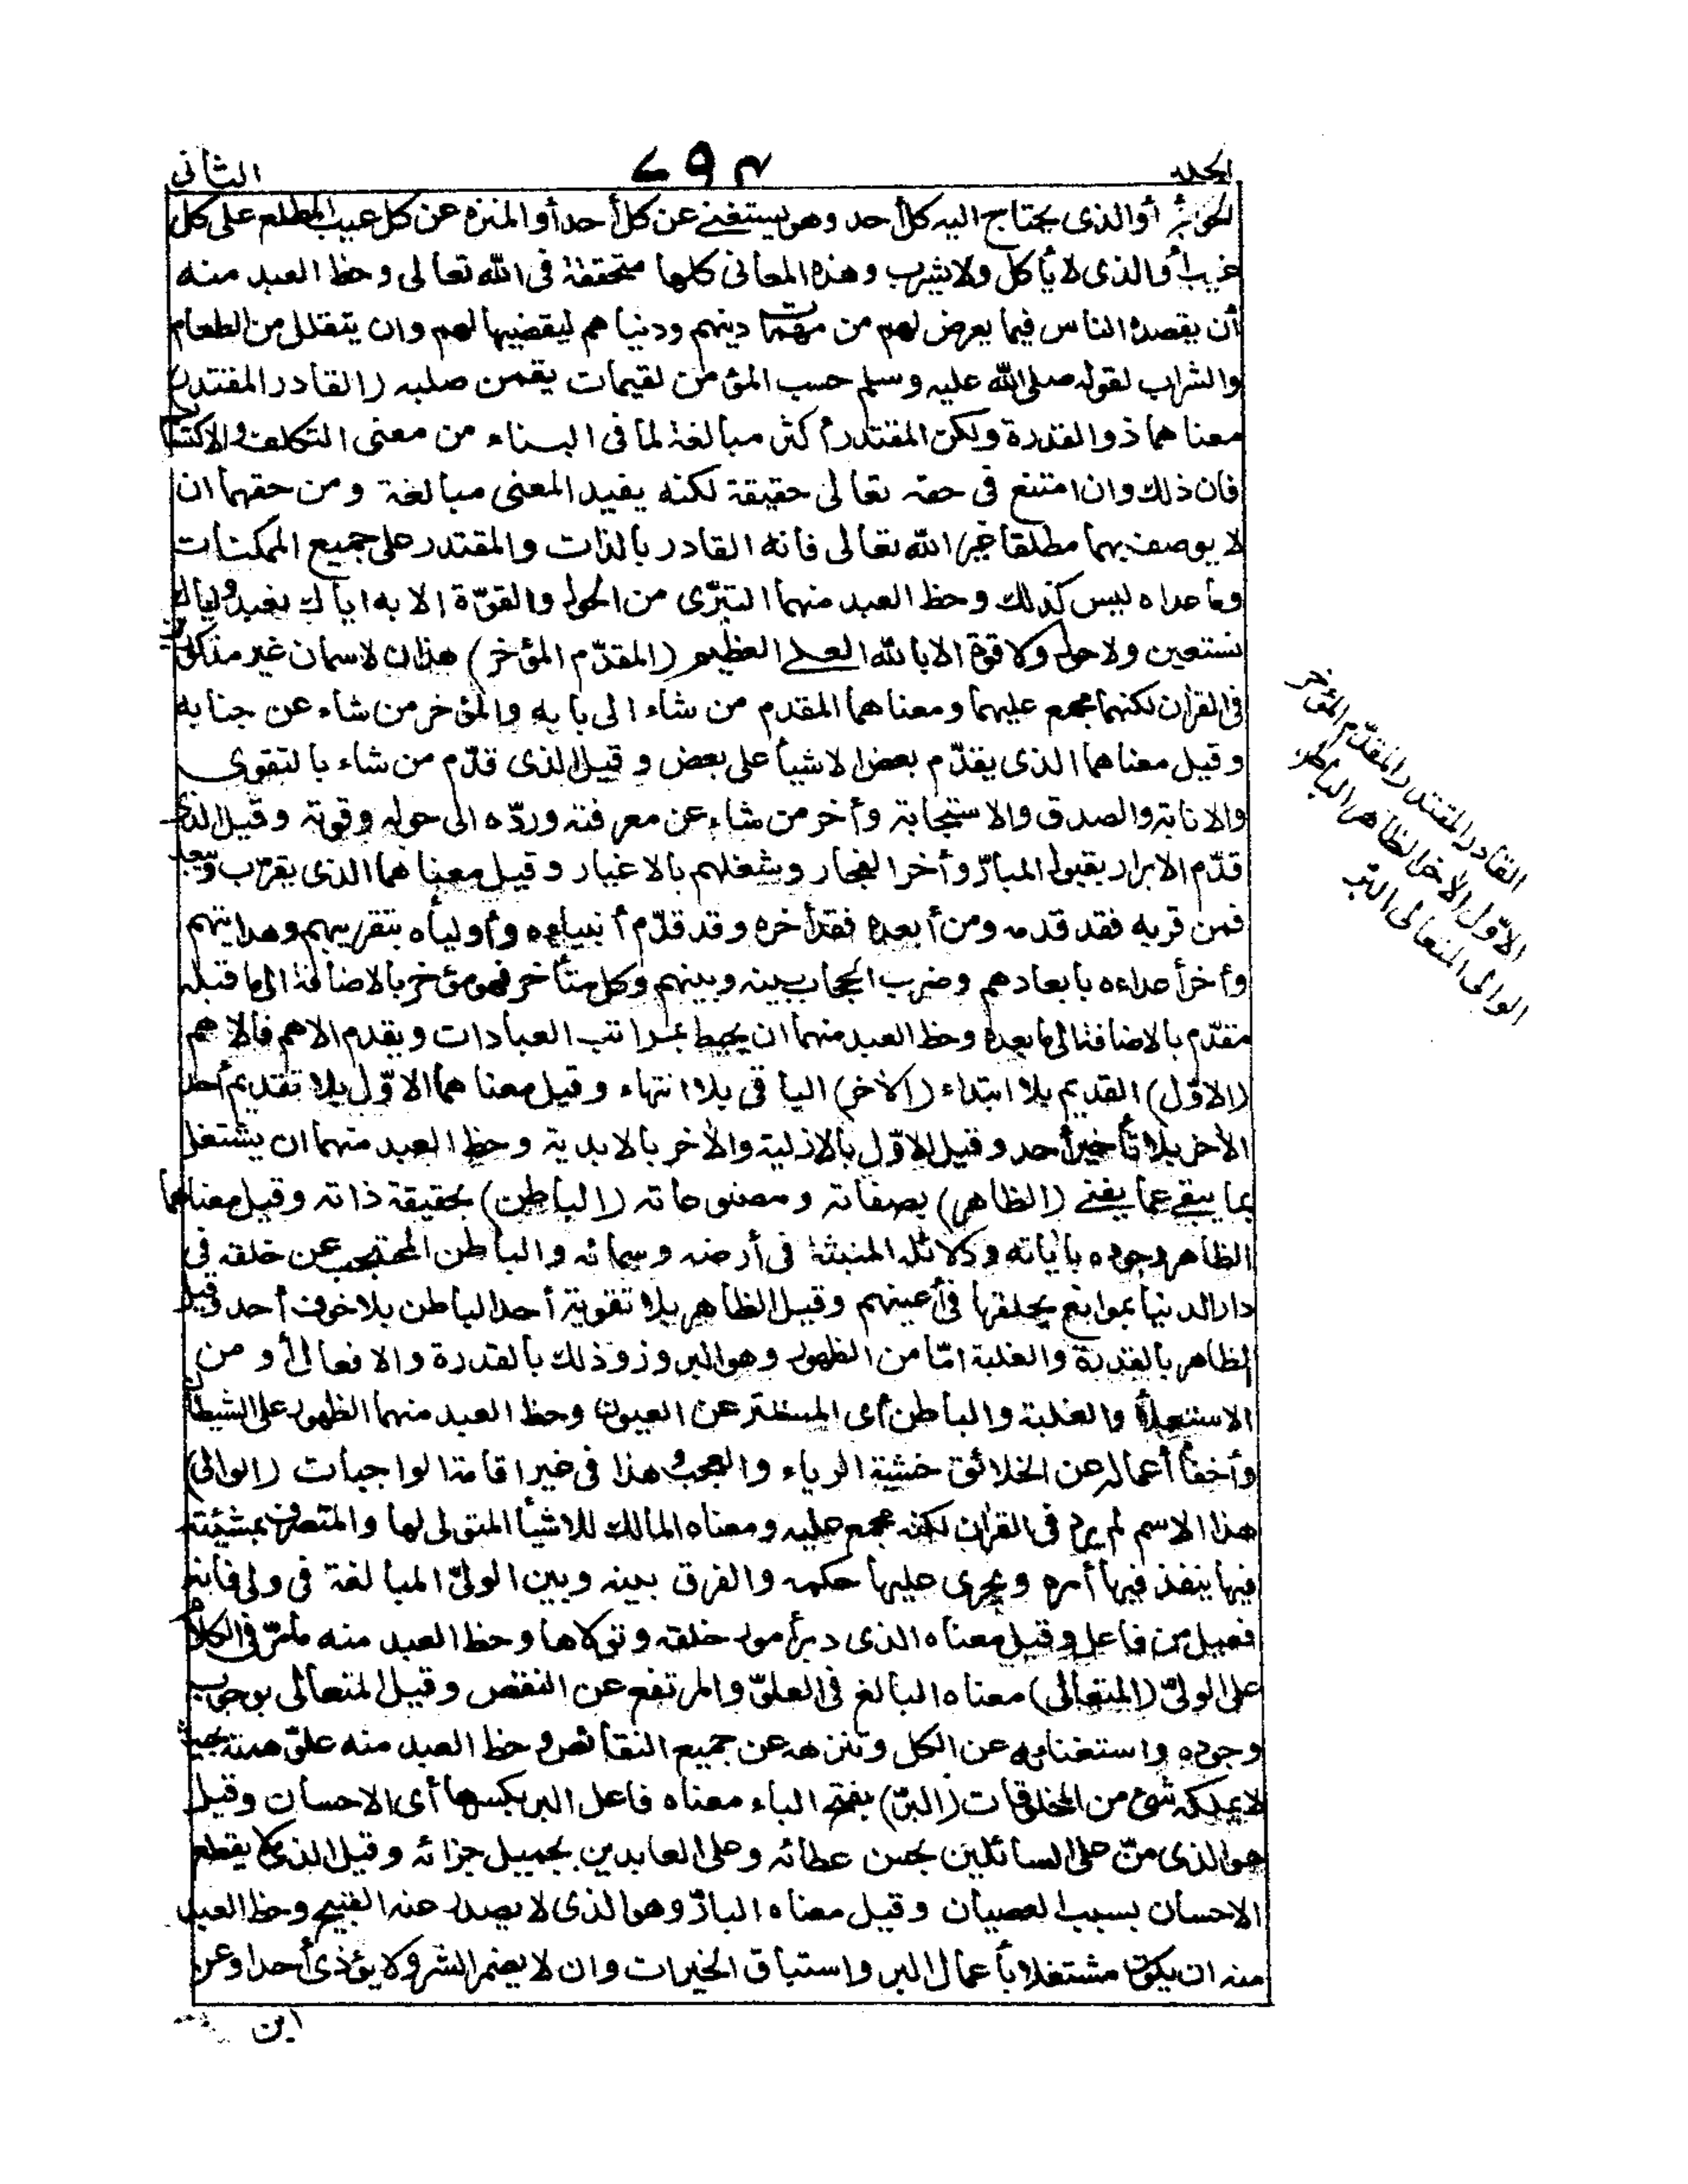 الجلد ٦٩٣ الثانى
الحوائج أوالذى يحتاج اليه كل أحد وهو يستغنى عن كل أحد أو المنزه عن كل عيب المطلع على كل
غيب أوالذى لا يأكل ولا يشرب وهذه المعانى كلها متحققة فى الله تعالى وحظ العبد منه
أن يقصده الناس فيما يعرض لهم من مهمات دينهم ودنياهم ليقضيها لهم وان يتقلل من الطعام
والشراب لقوله صلى الله عليه وسلم حسب المؤمن لقيمات يقمن صلبه (القادر المقتدر)
معناهما ذو القدرة ولكن المقتدر أكثر مبالغة لما فى البناء من معنى التكلف والاكتساب
فان ذلك وان امتنع فى حقه تعالى حقيقة لكنه يفيد المعنى مبالغة ومن حقهما ان
لا يوصف بهما مطلقا غير الله تعالى فانه القادر بالذات والمقتدر على جميع الممكنات
وما عداه ليس كذلك وحظ العبد منهما التبرّى من الحول والقوّة الا به اياك نعبد واياك
نستعين ولا حول ولا قوة الا بالله العلى العظيم (المقدّم المؤخر) هذان الاسمان غير مذكورين
فى القرآن لكنهما مجمع عليهما ومعناهما المقدم من شاء الى بابه والمؤخر من شاء عن جنابه
وقيل معناهما الذى يقدّم بعض الاشيأ على بعض وقيل الذى قدّم من شاء بالتقوى
والانابة والصدق والاستجابة وأخر من شاء عن معرفته وردّه الى حوله وقوته وقيل الذى
قدّم الابرار بقبول المبارّ وأخر الفجار وشغلهم بالاغيار وقيل معناهما الذى يقرّب ويبعد
فمن قربه فقد قدمه ومن أبعده فقد أخره وقد قدّم أنبياءه وأولياه بتقريبهم وهدايتهم
وأخر أعداءه بابعادهم وضرب الحجاب بينه وبينهم وكل متأخر فهو مؤخر بالاضافة الى ما قبله
مقدّم بالاضافة الى ما بعده وحظ العبد منهما ان يحيط بمراتب العبادات ويقدم الاهم فالاهم
(الاوّل) القديم بلا ابتداء (الآخر) الباقى بلا انتهاء وقيل معناهما الاوّل بلا تقديم أحد
الآخر بلا تأخير أحد وقيل الاوّل بالازلية والآخر بالابدية وحظ العبد منهما ان يشتغل
بما يبقى عما يفنى (الظاهر) بصفاته ومصنوعاته (الباطن) بحقيقة ذاته وقيل معناهما
الظاهر وجوده بآياته ودلائله المنبثة فى أرضه وسمائه والباطن المحتجب عن خلقه فى
دار الدنيا بموانع يخلقها فى أعينهم وقيل الظاهر بلا تقوية أحد الباطن بلا خوف أحد وقيل
الظاهر بالقدرة والغلبة امّا من الظهور وهو البروز وذلك بالقدرة والافعال أو من
الاستعلأ والغلبة والباطن أى المستتر عن العيون وحظ العبد منهما الظهور على الشيطان
وأخفأ أعماله عن الخلائق خشية الرياء والعجب وهذا فى غير اقامة الواجبات (الوالى)
هذا الاسم لم يرد فى القرآن لكنه مجمع عليه ومعناه المالك للاشيأ المتولى لها والمتصرف بمشيئته
فيها ينفذ فيها أمره ويجرى عليها حكمه والفرق بينه وبين الولىّ المبالغة فى ولى فانه
فعيل من فاعل وقيل معناه الذى دبر أمور خلقه وتولاها وحظ العبد منه ما مرّ فى الكلام
على الولىّ (المتعالى) معناه البالغ فى العلوّ والمرتفع عن النقص وقيل المتعالى بوجوب
وجوده واستغنايه عن الكل وتنزهه عن جميع النقائص وحظ العبد منه علوّ همته بحيث
لا يملكه شئ من المخلوقات (البرّ) بفتح الباء معناه فاعل البر بكسرها أى الاحسان وقيل
هو الذى منّ على السائلين بحسن عطائه وعلى العابدين بجميل جزائه وقيل الذى لا يقطع
الاحسان بسبب العصيان وقيل معناه البارّ وهو الذى لا يصدر عنه القبيح وحظ العبد
منه ان يكون مشتغلا بأعمال البر واستباق الخيرات وان لا يضمر الشر ولا يؤذى أحدا وعن
ابن
القادر المقتدر المقدّم المؤخر
الاوّل الآخر الظاهر الباطن
الوالى المتعالى البرّ